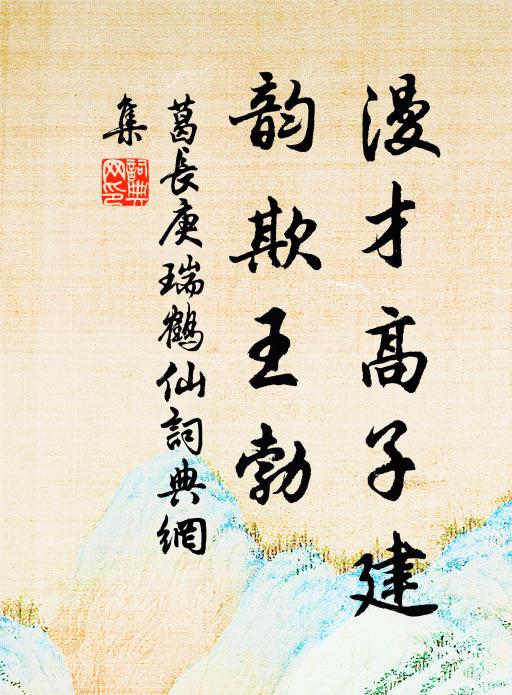 漫才高子建
韵欺王勃
葛長庚瑞鶴仙詞典網
集
詞典網印